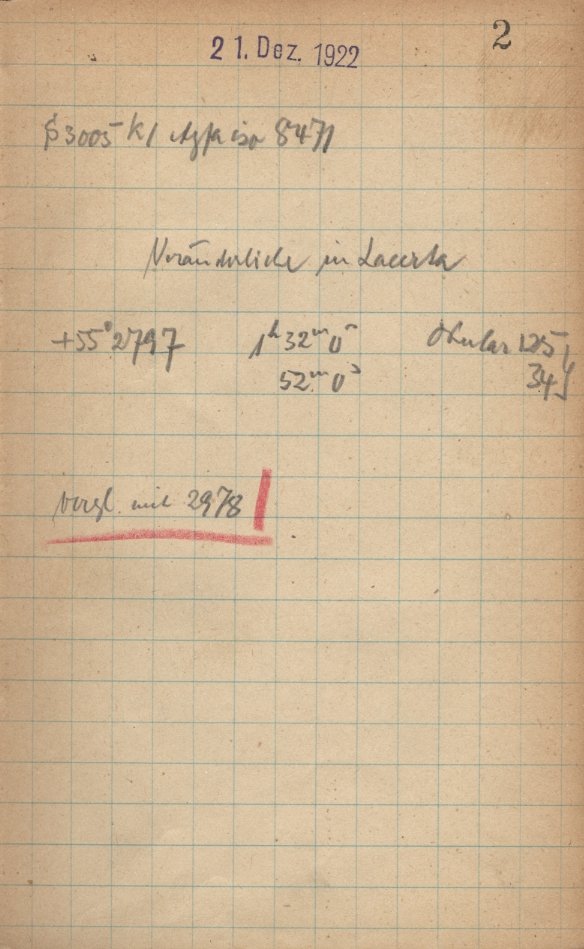 2
21. Dez. 1922
S 3005 kl Agfa iso 8471
Veränderliche in Lacerta
+55° 2797 1h 32m 0s Okular 125
52m 0s 34
vergl. mit 2978